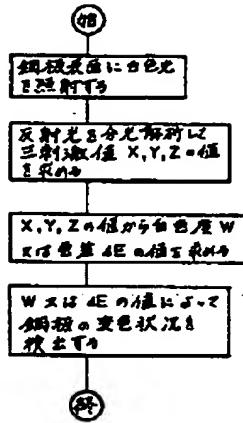 始
鋼板表面に白色光
を照射する
反射光を分光解析して
三刺激値 X,Y,Z の値
を求める
X,Y,Z の値から白色度 W
又は色差 ΔE の値を求める
W 又は ΔE の値によって
鋼板の変色状況を
検出する
終